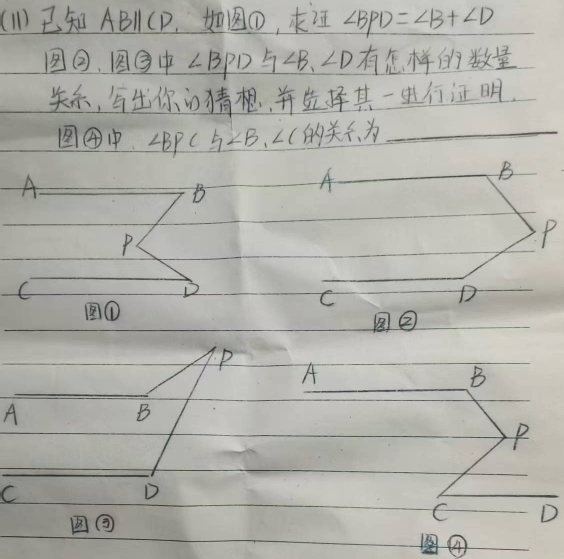 (11) 已知 AB∥CD, 如图①, 求证 ∠BPD=∠B+∠D
图②、图③中 ∠BPD与∠B、∠D有怎样的数量
关系, 写出你的猜想, 并选择其一进行证明.
图④中, ∠BPC与∠B、∠C的关系为
A B
P
C D
图①
A B
P
C D
图②
P
A B
C D
图③
A B
P
C D
图④